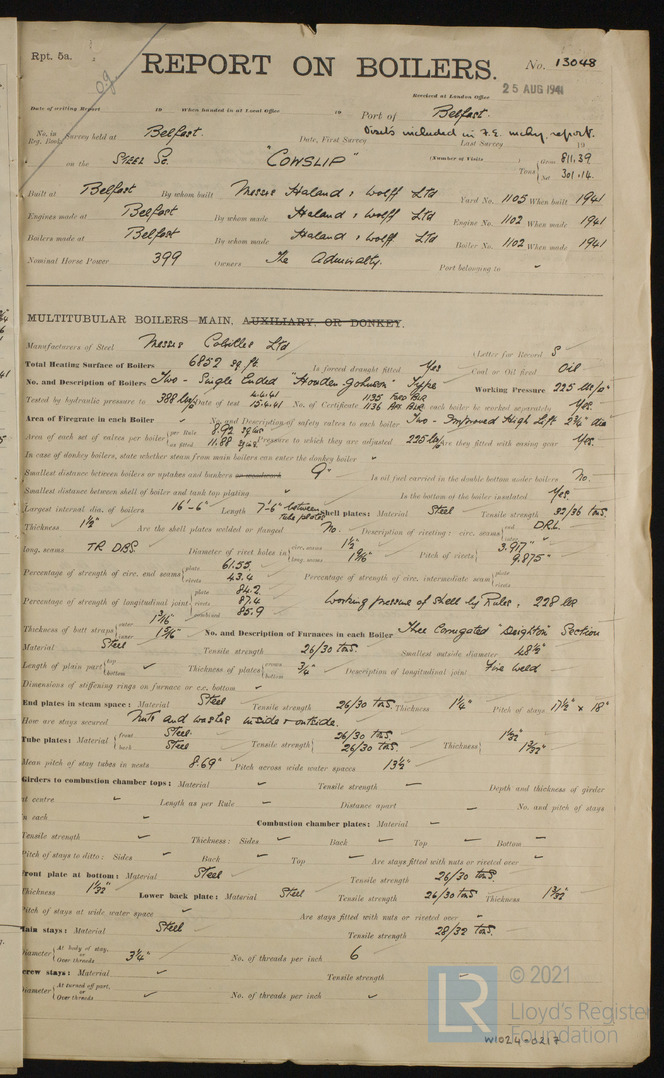 Rpt. 5a.
REPORT ON BOILERS.
No. 13048
25 AUG 1941
Received at London Office
Date of writing Report 19 When handed in at Local Office 19 Port of Belfast.
No. in Reg. Book Survey held at Belfast Date, First Survey Visits included in F.E. mchy. report. Last Survey 19
on the STEEL Sc. "COWSLIP" (Number of Visits Tons Gross 811.39 Net 301.14
Built at Belfast By whom built Messrs Harland & Wolff Ltd Yard No. 1105 When built 1941
Engines made at Belfast By whom made Harland & Wolff Ltd Engine No. 1102 When made 1941
Boilers made at Belfast By whom made Harland & Wolff Ltd Boiler No. 1102 When made 1941
Nominal Horse Power 399 Owners The Admiralty. Port belonging to
MULTITUBULAR BOILERS—MAIN, AUXILIARY, OR DONKEY.
Manufacturers of Steel Messrs Colvilles Ltd (Letter for Record S
Total Heating Surface of Boilers 6852 sq ft. Is forced draught fitted Yes Coal or Oil fired Oil
No. and Description of Boilers Two - Single Ended "Howden Johnson" Type Working Pressure 225 lbs/□"
Tested by hydraulic pressure to 388 lbs/□" Date of test 4.4.41 15.4.41 No. of Certificate 1135 FORD BLR 1136 AFT BLR Can each boiler be worked separately Yes.
Area of Firegrate in each Boiler No. and Description of safety valves to each boiler Two - Improved High Lift 2¾" dia
Area of each set of valves per boiler per Rule 8.92 as fitted 11.88 Pressure to which they are adjusted 225 lbs/□" Are they fitted with easing gear Yes.
In case of donkey boilers, state whether steam from main boilers can enter the donkey boiler
Smallest distance between boilers or uptakes and bunkers or woodwork 9" Is oil fuel carried in the double bottom under boilers No.
Smallest distance between shell of boiler and tank top plating Is the bottom of the boiler insulated Yes.
Largest internal dia. of boilers 16'-6" Length 7'-6" between tube plates Shell plates: Material Steel Tensile strength 32/36 tons.
Thickness 1½" Are the shell plates welded or flanged No. Description of riveting: circ. seams end D.R.L.
long. seams TR DBS. Diameter of rivet holes in circ. seams 1½" long. seams 1 9/16" Pitch of rivets 3.917" 9.875"
Percentage of strength of circ. end seams plate 61.55. rivets 43.4 Percentage of strength of circ. intermediate seam plate rivets
Percentage of strength of longitudinal joint plate 84.2 rivets 87.4 combined 85.9 Working pressure of shell by Rules. 228 lbs
Thickness of butt straps outer 1 3/16" inner 1 5/16" No. and Description of Furnaces in each Boiler Three Corrugated "Deighton" Section
Material Steel Tensile strength 26/30 tons. Smallest outside diameter 48½"
Length of plain part top bottom Thickness of plates crown bottom ¾" Description of longitudinal joint Fire Weld.
Dimensions of stiffening rings on furnace or c.c. bottom
End plates in steam space: Material Steel Tensile strength 26/30 tons. Thickness 1¼" Pitch of stays 17½" x 18"
How are stays secured Nuts and washers inside & outside.
Tube plates: Material front Steel. back Steel Tensile strength 26/30 tons. 26/30 tons. Thickness
Mean pitch of stay tubes in nests 8.69" Pitch across wide water spaces 13½"
Girders to combustion chamber tops: Material Tensile strength Depth and thickness of girder
at centre Length as per Rule Distance apart No. and pitch of stays
in each Combustion chamber plates: Material
Tensile strength Thickness: Sides Back Top Bottom
Pitch of stays to ditto: Sides Back Top Are stays fitted with nuts or riveted over
Front plate at bottom: Material Steel Tensile strength 26/30 tons.
Thickness Lower back plate: Material Steel Tensile strength 26/30 tons Thickness
Pitch of stays at wide water space Are stays fitted with nuts or riveted over
Main stays: Material Steel Tensile strength 28/32 tons.
Diameter At body of stay, or Over threads 3¼" No. of threads per inch 6
Screw stays: Material Tensile strength
Diameter At turned off part, or Over threads No. of threads per inch
© 2021
LR Lloyd's Register
Foundation
W1024-0217